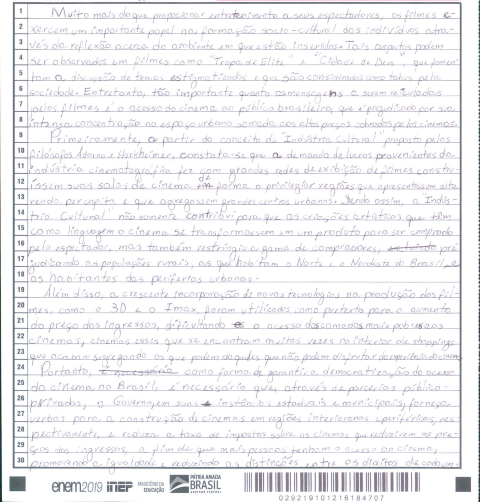 1 Muito mais do que proporcionar entretenimento a seus espectadores, os filmes e-
2 xercem um importante papel na formação socio-cultural dos indivíduos atra-
3 vés da reflexão acerca do ambiente em que estão inseridos. Tais aspectos podem
4 ser observados em filmes como "Tropa de Elite" e "Cidade de Deus", que fomen-
5 tam a discussão de temas estigmatizados e que são considerados como tabus pela
6 sociedade. Entretanto, tão importante quanto as mensagens a serem veiculadas
7 pelos filmes é o acesso do cinema ao público brasileiro, que é prejudicado por sua
8 intensa concentração no espaço urbano somada aos altos preços cobrados pelos cinemas.
9 Primeiramente, a partir do conceito de "Indústria Cultural" proposto pelos
10 filósofos Adorno e Horkheimer, constata-se que a demanda de lucros provenientes da
11 indústria cinematográfica fez com grandes redes de exibição de filmes constru-
12 íssem suas salas de cinema de forma a privilegiar regiões que apresentam alta
13 renda per capita e que agregassem grandes centros urbanos. Sendo assim, a Indús-
14 tria Cultural não somente contribui para que as criações artísticas que têm
15 como linguagem o cinema se transformassem em um produto para ser comprado
16 pelo espectador, mas também restringiu a gama de compradores, pre-
17 judicando as populações rurais, as que habitam o Norte e o Nordeste do Brasil e
18 os habitantes das periferias urbanas.
19 Além disso, a crescente incorporação de novas tecnologias na produção dos fil-
20 mes, como o 3D e o Imax, foram utilizados como pretexto para o aumento
21 do preço dos ingressos, dificultando o acesso das camadas mais pobres aos
22 cinemas, cinemas esses que se encontram muitas vezes no interior de shoppings
23 que acabam segregando os que podem daqueles que não podem disfrutar do
24 Portanto, como forma de garantir a democratização do acesso
25 do cinema no Brasil, é necessário que, através de parcerias público-
26 privadas, o Governo, em suas instâncias estaduais e municipais, forneça
27 verbas para a construção de cinemas em regiões interioranas e periféricas, res-
28 pectivamente, e reduza a taxa de impostos sobre os cinemas que reduzirem os pre-
29 ços dos ingressos, a fim de que mais pessoas tenham o acesso ao cinema,
30 promovendo a igualdade e reduzindo as distinções entre os direitos de cada um.
enem2019 INEP MINISTÉRIO DA EDUCAÇÃO PÁTRIA AMADA BRASIL GOVERNO FEDERAL
029219101216184707